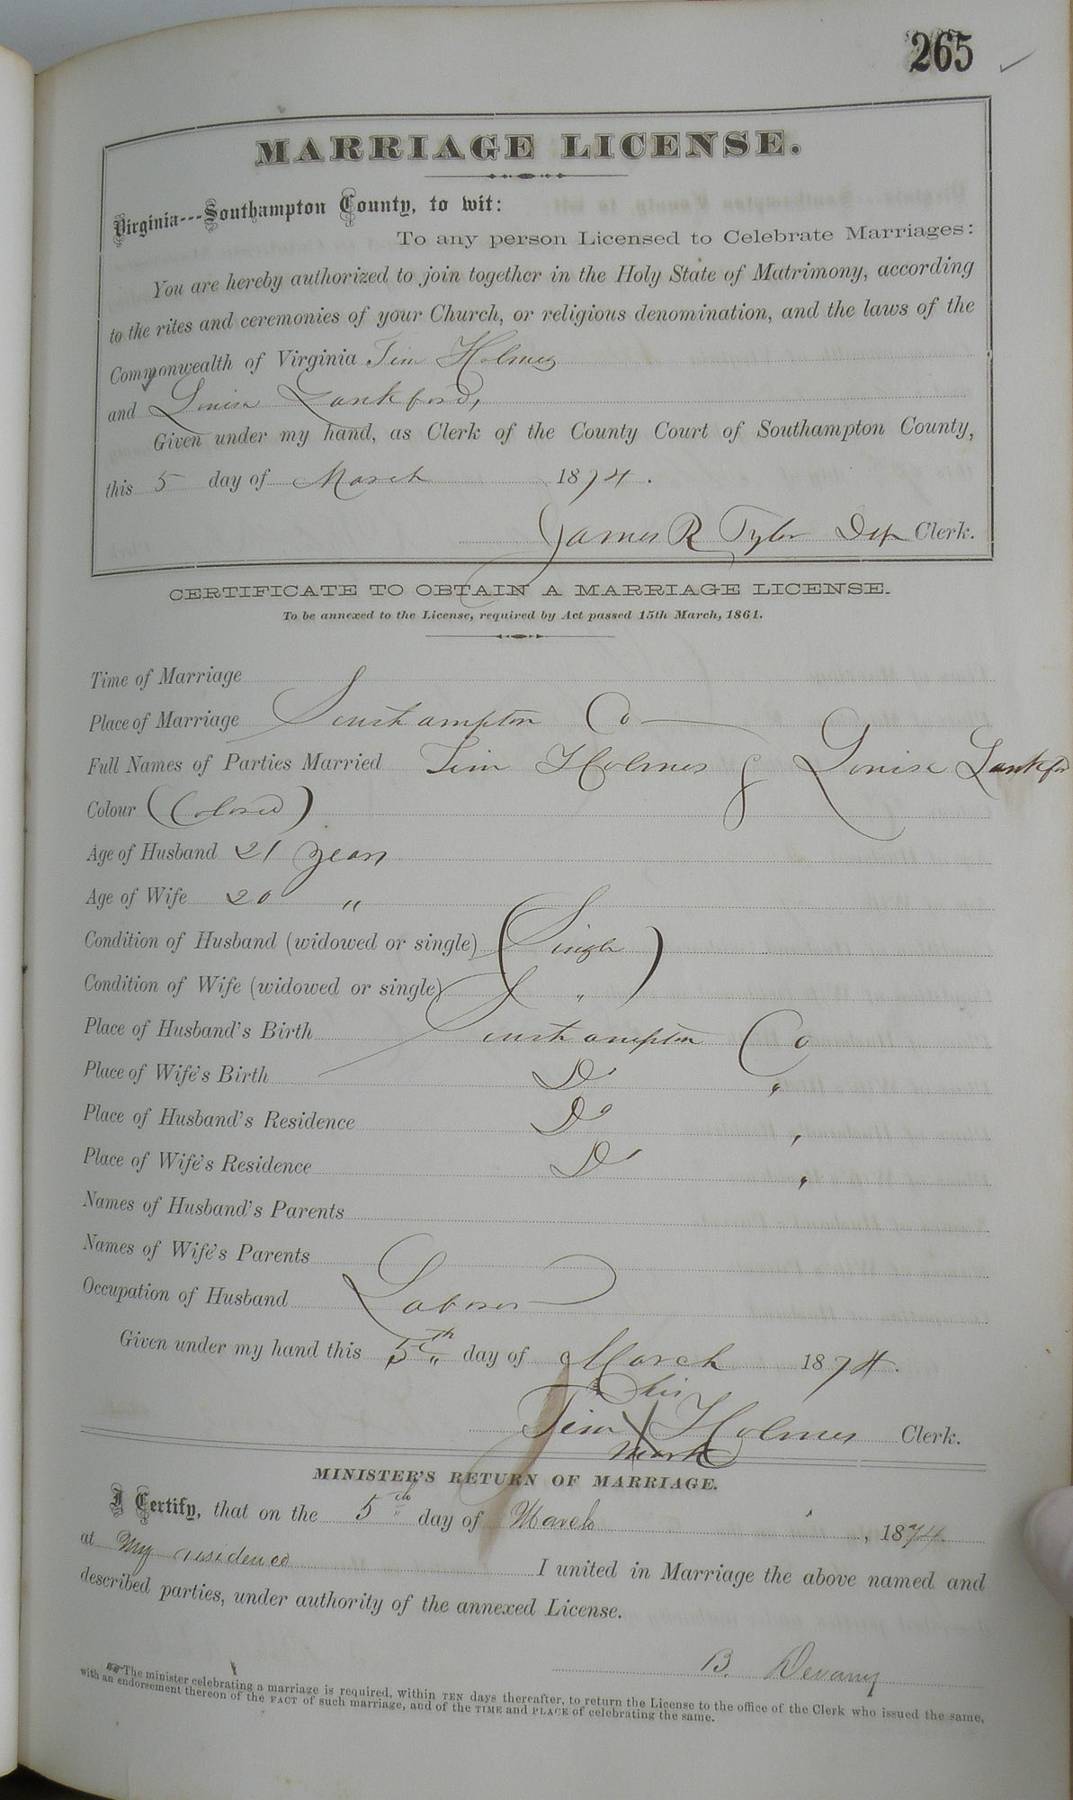 265
MARRIAGE LICENSE.
Virginia---Southampton County, to wit:
To any person Licensed to Celebrate Marriages:
You are hereby authorized to join together in the Holy State of Matrimony, according
to the rites and ceremonies of your Church, or religious denomination, and the laws of the
Commonwealth of Virginia Tim Holmes
and Louisa Lankford,
Given under my hand, as Clerk of the County Court of Southampton County,
this 5 day of March 1874.
James R Tyler Dep Clerk.
CERTIFICATE TO OBTAIN A MARRIAGE LICENSE.
To be annexed to the License, required by Act passed 15th March, 1861.
Time of Marriage
Place of Marriage Southampton Co
Full Names of Parties Married Tim Holmes & Louisa Lankfor
Colour (Colored)
Age of Husband 21 years
Age of Wife 20 "
Condition of Husband (widowed or single) (Single)
Condition of Wife (widowed or single) "
Place of Husband's Birth Southampton Co
Place of Wife's Birth Do "
Place of Husband's Residence Do "
Place of Wife's Residence Do "
Names of Husband's Parents
Names of Wife's Parents
Occupation of Husband Laborer
Given under my hand this 5th day of March 1874.
his
Tim X Holmes Clerk.
mark
MINISTER'S RETURN OF MARRIAGE.
I Certify, that on the 5th day of March, 1874.
at my residence I united in Marriage the above named and
described parties, under authority of the annexed License.
B. Devany
The minister celebrating a marriage is required, within TEN days thereafter, to return the License to the office of the Clerk who issued the same,
with an endorsement thereon of the FACT of such marriage, and of the TIME and PLACE of celebrating the same.